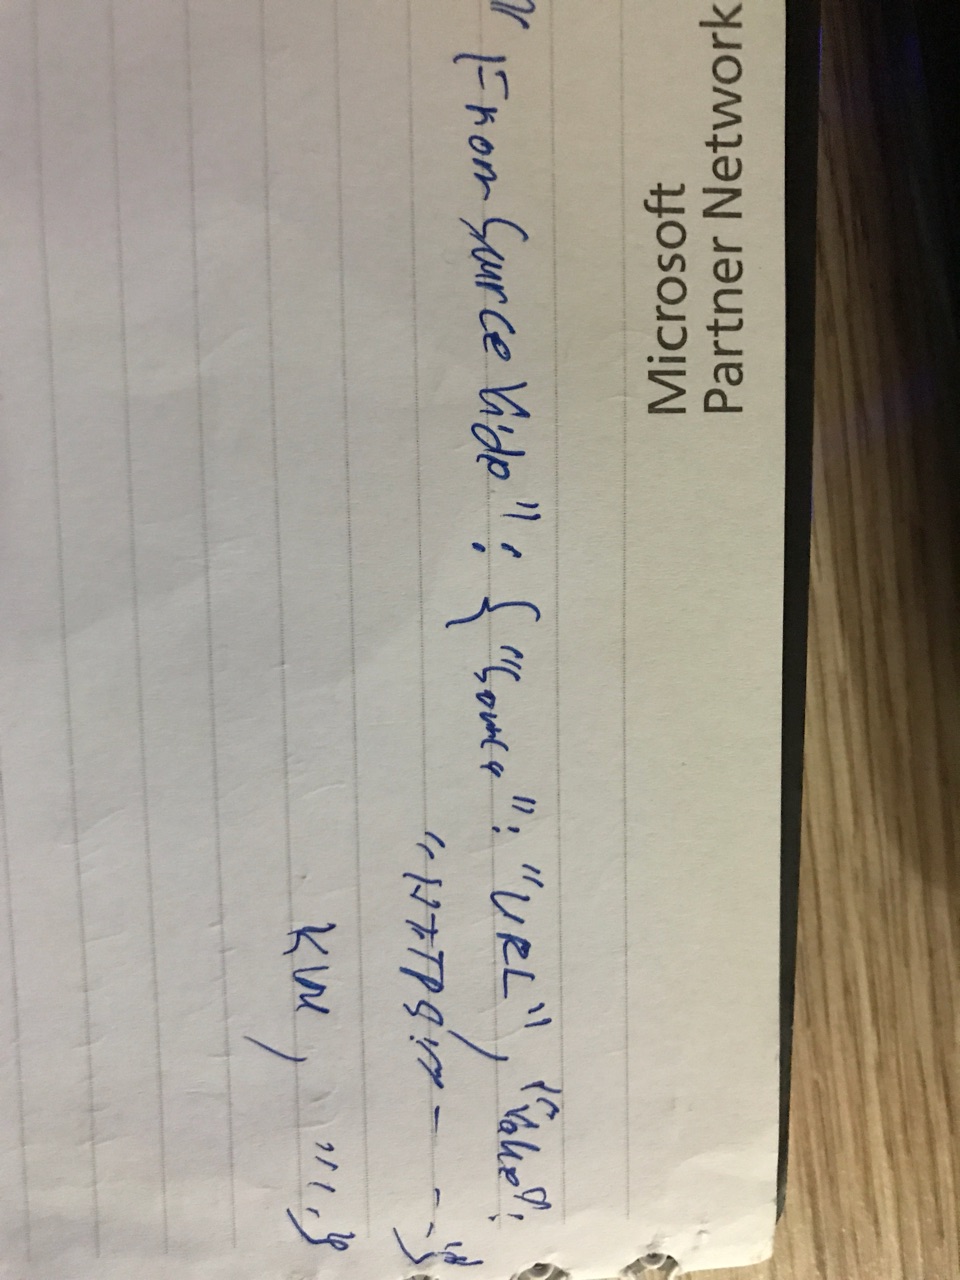 Microsoft
Partner Network
"From Source Vide": { "Source": "URL", "Value":
"HTTPS:// - - - }
, '''' . }